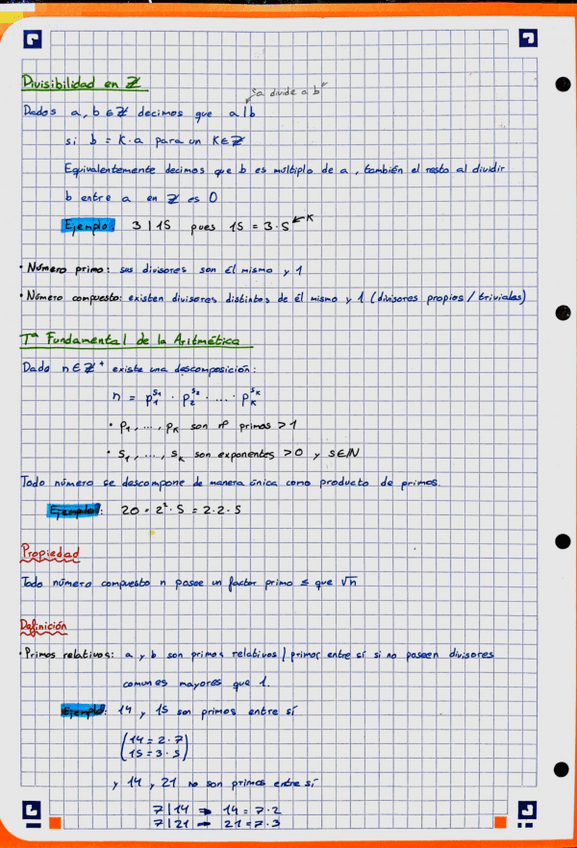 Divisibilidad en ℤ
"a divide a b"
Dados a, b ∈ ℤ decimos que a|b
si b = K·a para un K∈ℤ
Equivalentemente decimos que b es múltiplo de a, también el resto al dividir
b entre a en ℤ es 0
Ejemplo: 3|15 pues 15 = 3·5 ← K
· Número primo: sus divisores son él mismo y 1
· Número compuesto: existen divisores distintos de él mismo y 1 (divisores propios / triviales)
Tª Fundamental de la Aritmética
Dado n∈ℤ⁺ existe una descomposición:
n = p₁^s₁ · p₂^s₂ · ... · p_K^s_K
· p₁, ..., p_K son nº primos > 1
· s₁, ..., s_K son exponentes > 0 y s∈ℕ
Todo número se descompone de manera única como producto de primos.
Ejemplo: 20 = 2²·5 = 2·2·5
Propiedad
Todo número compuesto n posee un factor primo ≤ que √n
Definición
· Primos relativos: a y b son primos relativos / primos entre sí si no poseen divisores
comunes mayores que 1.
Ejemplo: 14 y 15 son primos entre sí
(14 = 2·7)
(15 = 3·5)
y 14 y 21 no son primos entre sí
7|14 → 14 = 7·2
7|21 → 21 = 7·3